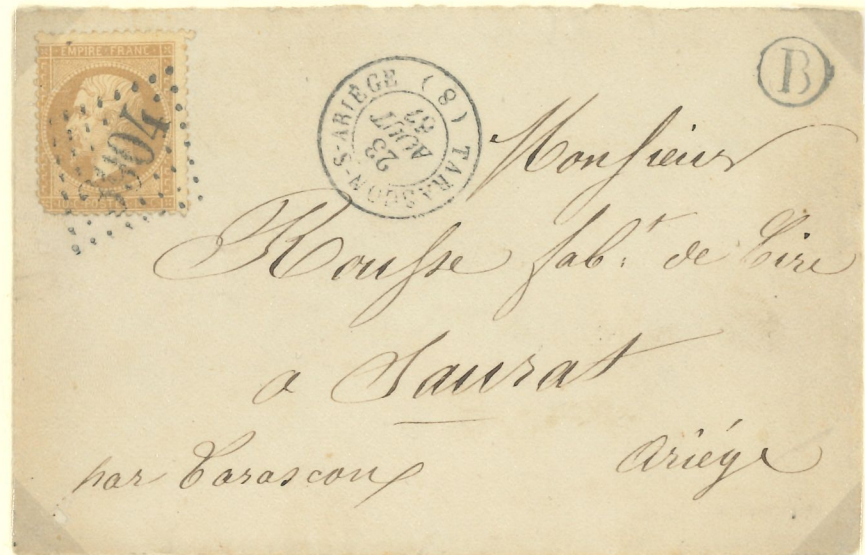 EMPIRE FRANC
TARASCON-S-ARIÈGE (8)
23
AOUT
67
B
Monsieur
Rousse fab.t de Cire
a Saurat
par Tarascon
Ariége